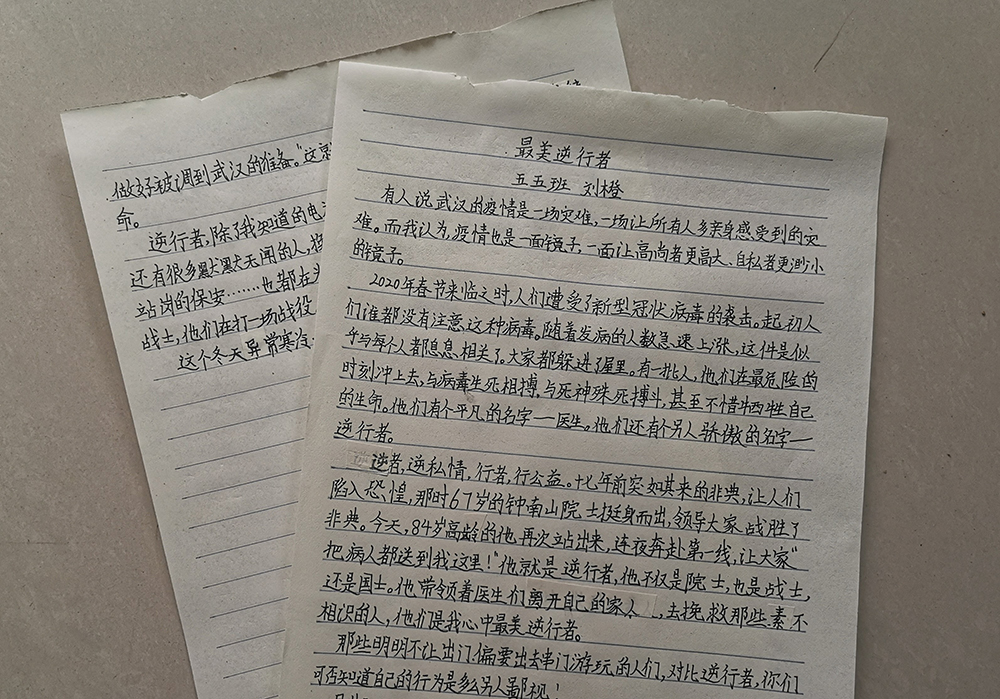 最美逆行者
五五班 刘橙
有人说武汉的疫情是一场灾难,一场让所有人多亲身感受到的灾
难。而我认为,疫情也是一面镜子,一面让高尚者更高大、自私者更渺小
的镜子。
2020年春节来临之时,人们遭受了新型冠状病毒的袭击。起初人
们谁都没有注意这种病毒。随着发病的人数急速上涨,这件是似
乎与每个人都息息相关了。大家都躲进了屋里。有一批人,他们在最危险的
时刻冲上去,与病毒生死相搏,与死神殊死搏斗,甚至不惜牺牲自己
的生命。他们有个平凡的名字一医生。他们还有个另人骄傲的名字一
逆行者。
逆者,逆私情,行者,行公益。十七年前突如其来的非典,让人们
陷入恐惶,那时67岁的钟南山院士挺身而出,领导大家战胜了
非典。今天,84岁高龄的他再次站出来,连夜奔赴第一线,让大家"
把病人都送到我这里!"他就是逆行者,他不仅是院士,也是战士,
还是国士。他带领着医生们离开自己的家人,去挽救那些素不
相识的人,他们是我心中最美逆行者。
那些明明不让出门偏要出去串门游玩的人们,对比逆行者,你们
可否知道自己的行为是多么另人鄙视!
做好被调到武汉的准备。"这
命。
逆行者,除了我知道的电
还有很多默默无闻的人,
站岗的保安……也都在
战士,他们在打一场战役
这个冬天异常寒冷